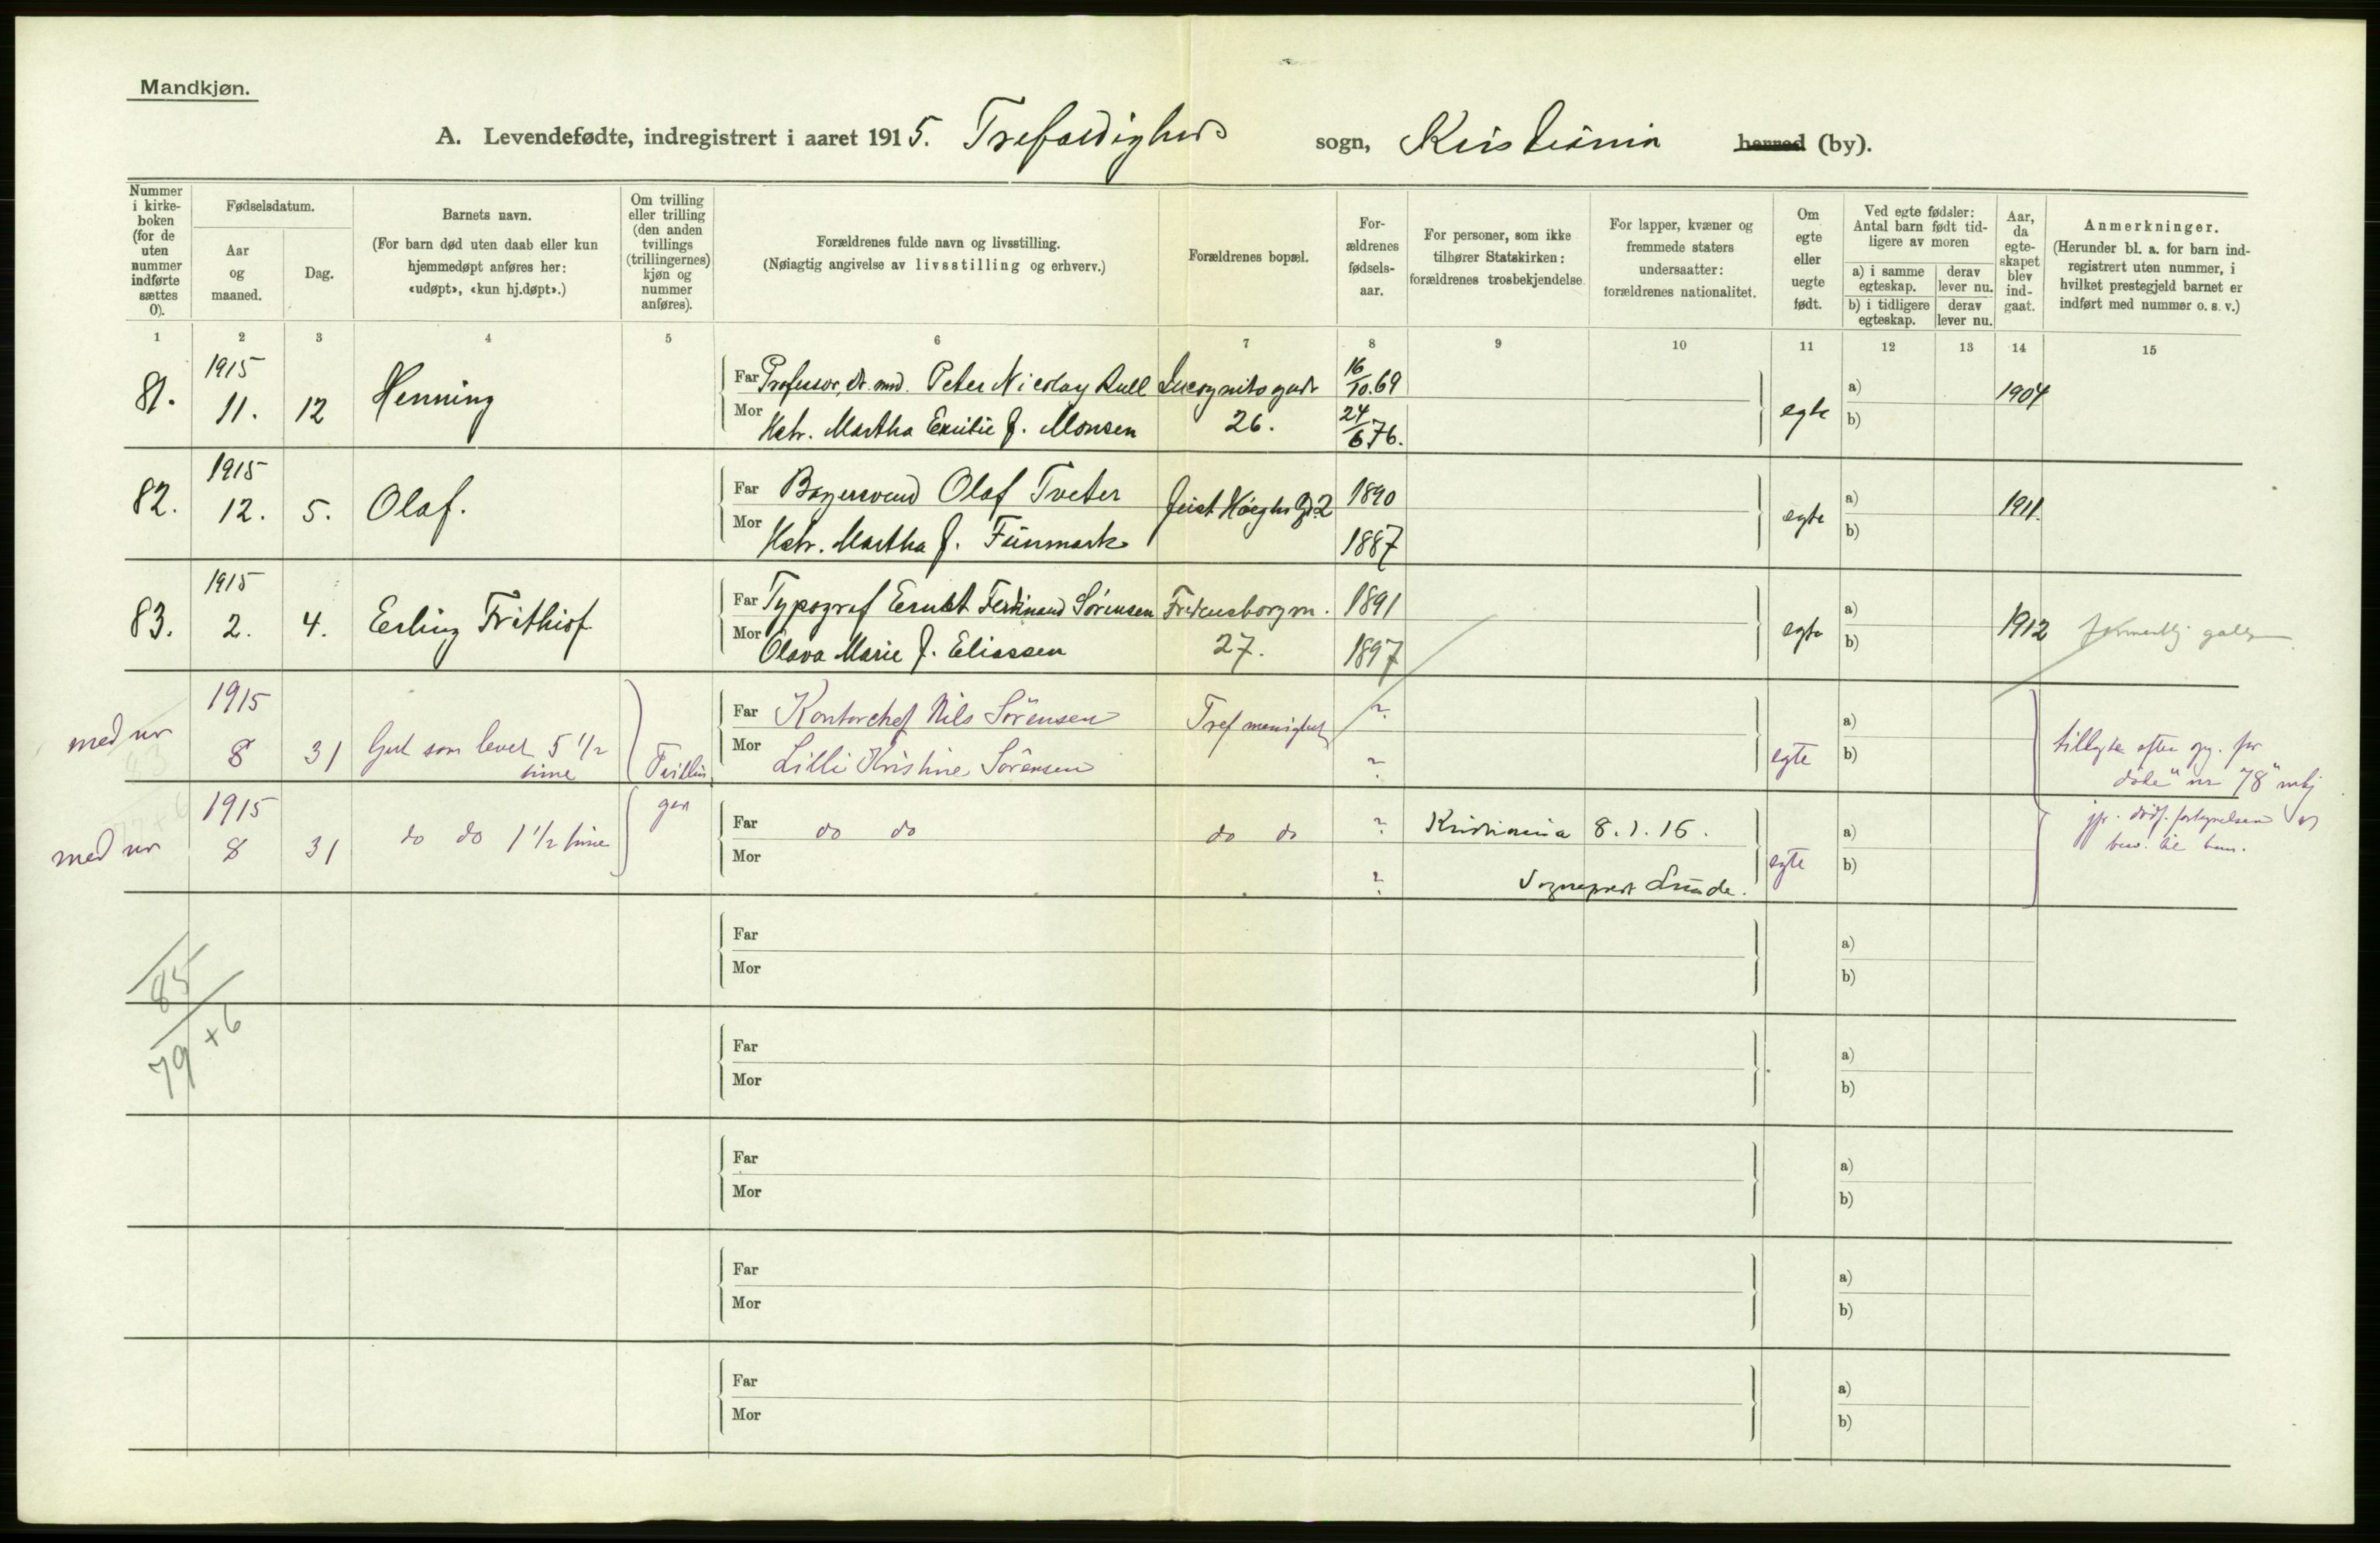 Mandkjøn.
A. Levendefødte, indregistrert i aaret 1915. Trefoldigheds sogn, Kristiania herred (by).
Nummer i kirke-boken (for de uten nummer indførte sættes 0).
Fødselsdatum.
Aar og maaned.
Dag.
Barnets navn.
(For barn død uten daab eller kun hjemmedøpt anføres her: «udøpt», «kun hj.døpt».)
Om tvilling eller trilling (den anden tvillings (trillingernes) kjøn og nummer anføres).
Forældrenes fulde navn og livsstilling.
(Nøiagtig angivelse av livsstilling og erhverv.)
Forældrenes bopæl.
For-ældrenes fødsels-aar.
For personer, som ikke tilhører Statskirken: forældrenes trosbekjendelse.
For lapper, kvæner og fremmede staters undersaatter: forældrenes nationalitet.
Om egte eller uegte født.
Ved egte fødsler: Antal barn født tid-ligere av moren
a) i samme egteskap.
derav lever nu.
b) i tidligere egteskap.
derav lever nu.
Aar, da egte-skapet blev ind-gaat.
Anmerkninger.
(Herunder bl. a. for barn ind-registrert uten nummer, i hvilket prestegjeld barnet er indført med nummer o. s. v.)
1 2 3 4 5 6 7 8 9 10 11 12 13 14 15
81. 1915 11. 12 Henning
Far Professor, dr. med. Peter Nicolay Rull 16/10.69
Mor Hstr. Martha Emilie f. Monsen 26. 24/6 76. egte a) b) 1904
82. 1915 12. 5. Olaf.
Far Bagersvend Olaf Tveter Geist Høeghs Gd. 2 1890
Mor Hstr. Martha f. Finmark 1887 egte a) b) 1911.
83. 1915 2. 4. Erling Frithiof
Far Typograf Ernst Ferdinand Sørensen Fredensborgvn. 1891
Mor Olava Marie f. Eliassen 27. 1897 egte a) b) 1912
med nr 1915 8 31 Gut som levet 5 1/2 time Tvillin
Far Kontorchef Nils Sørensen Tref menighet ?
Mor Lilli Kristine Sørensen ? egte a) b)
tillagte efter opg. for
døde" nr 78"
med nr 1915 8 31 do do 1 1/2 time ger
Far do do do do ? Kristiania 8.1.16.
Mor ? Sogneprest Lunde. egte a) b)
85
79 + 6
Far
Mor
a)
b)
Far
Mor
a)
b)
Far
Mor
a)
b)
Far
Mor
a)
b)
Far
Mor
a)
b)